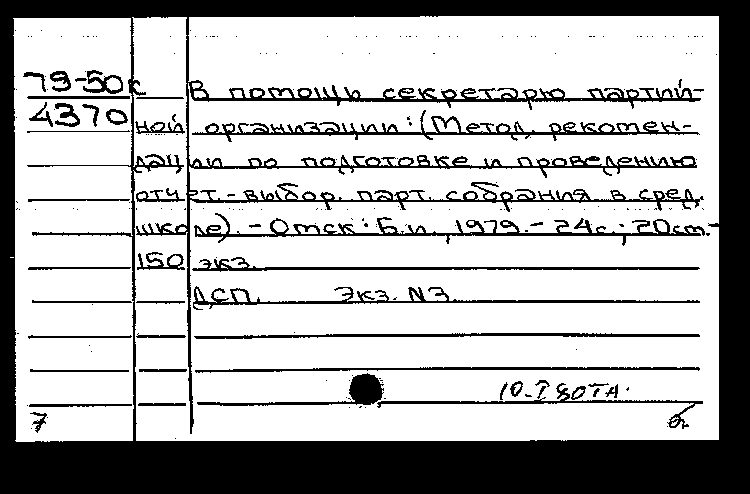 79-50к В помощь секретарю партий-
4370 ной организации: (Метод. рекомен-
дации по подготовке и проведению
отчет.-выбор. парт. собрания в сред.
школе). - Омск: Б.и., 1979. - 24с.; 20см. -
150 экз.
ДСП. Экз. N3.
10-I 80ТА.
7 б